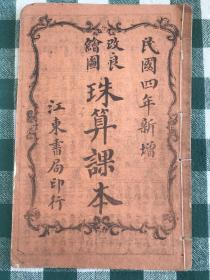 民國四年新增
改良
繪圖
珠算課本
江東書局印行